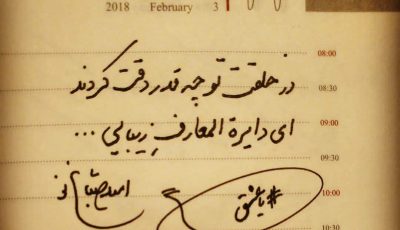 2018 February 3
08:00
در خلقت تو چه قدر دقت کردند
08:30
ای دایرة المعارفِ زیبایی ...
09:00
09:30
10:00
10:30